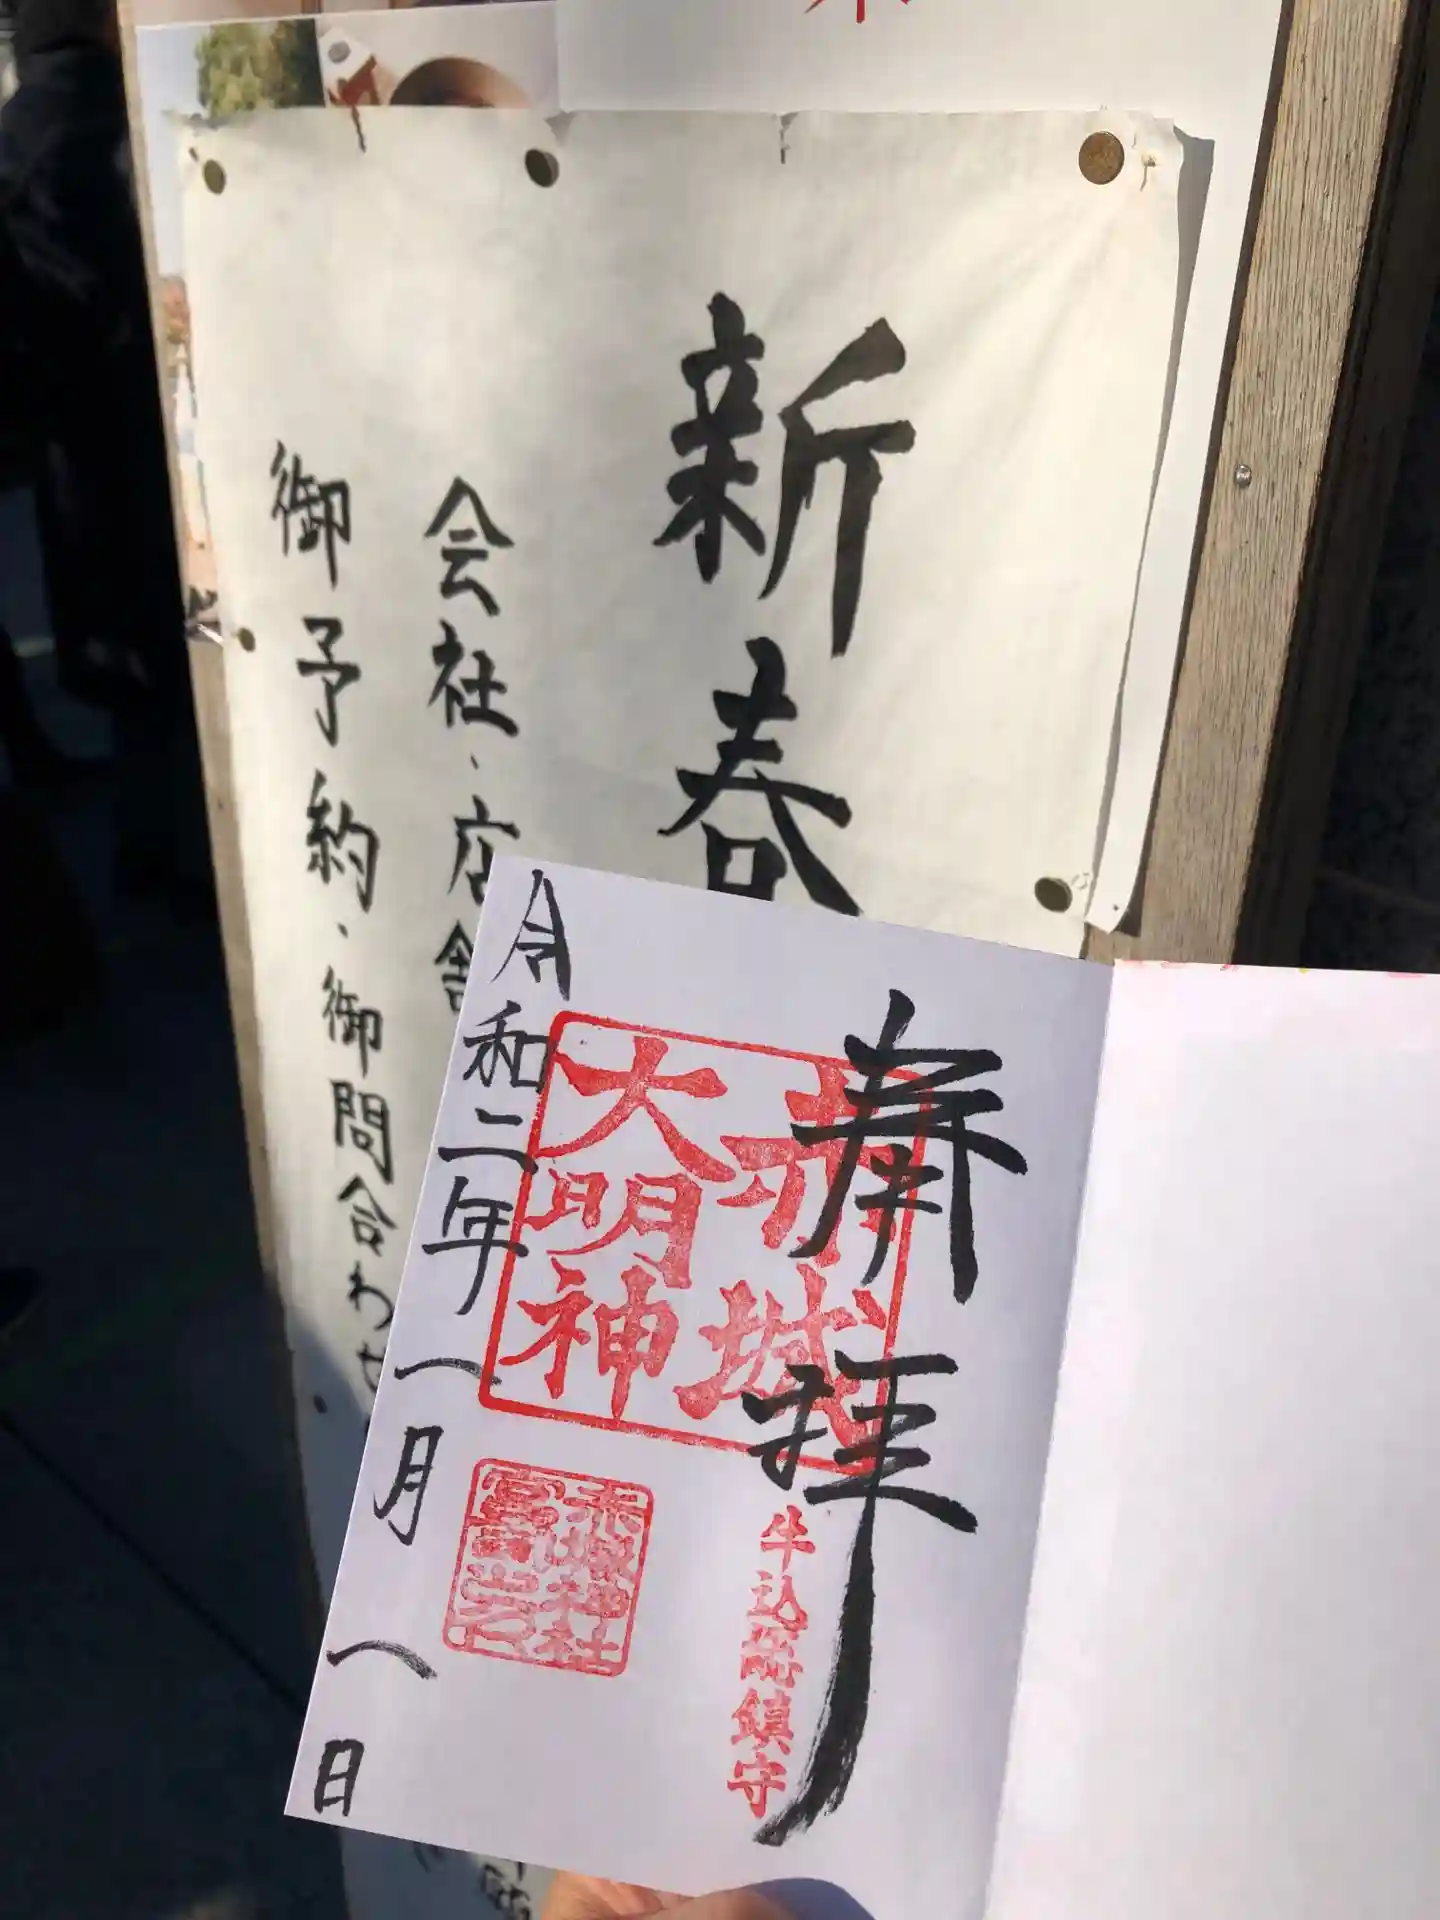 新春
会社・店舗
御予約・御問合わせ
奉拝
赤城
大明神
牛込総鎮守
赤城神社
令和二年一月一日